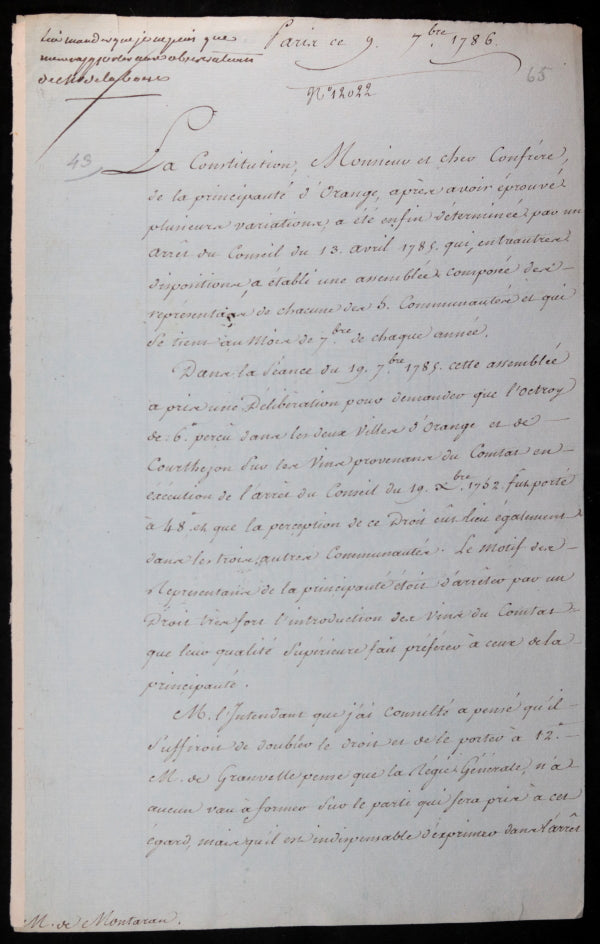 Paris ce 9. 7.bre 1786.
lui mander que je ne puis que
m'en rapporter aux observations
de M. de la
N.° 12022
65
43
La Constitution, Monsieur et cher Confrére,
de la principauté d'Orange, après avoir éprouvé
plusieurs variations, a été enfin déterminée par un
arrêt du Conseil du 13. avril 1785. qui, entreautres
dispositions, a établi une assemblée composée des
représentans de chacune des 5. Communautés et qui
se tient au Mois de 7.bre de chaque année.
Dans la séance du 19. 7.bre 1785. cette assemblée
a pris une Délibération pour demander que l'Octroy
de 6.s perçu dans les deux Villes d'Orange et de
Courthezon sur les Vins provenans du Comtat en
éxécution de l'arrêt du Conseil du 19. Xbre. 1752. fut porté
à 48.s et que la perception de ce Droit eût lieu également
dans les trois autres Communautés. Le Motif des
Représentans de la principauté étoit d'arrêter par un
Droit très fort l'introduction des Vins du Comtat
que leur qualité supérieure fait préférer à ceux de la
principauté.
M. l'Intendant que j'ai consulté a pensé qu'il
suffiroit de doubler le droit et de le porter à 12.s
M. de Granvelle pense que la Régie Générale, n'a
aucun vœu à former sur le parti qui sera pris à cet
egard, mais qu'il est indispensable d'exprimer dans l'arrêt
M. de Montaran.